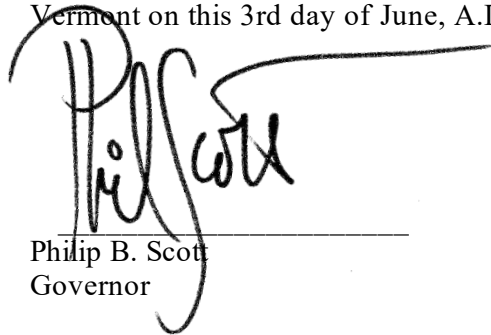 Vermont on this 3rd day of June, A.D
Phil Scott
Philip B. Scott
Governor